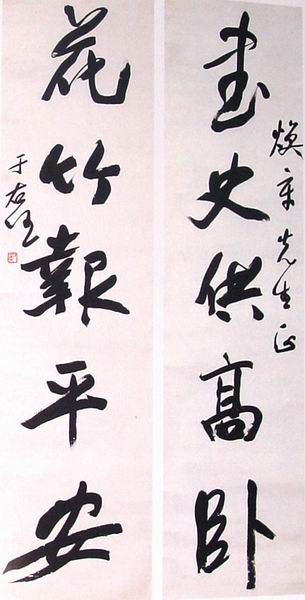 煥章先生正
書史供高卧
花竹報平安
于右任